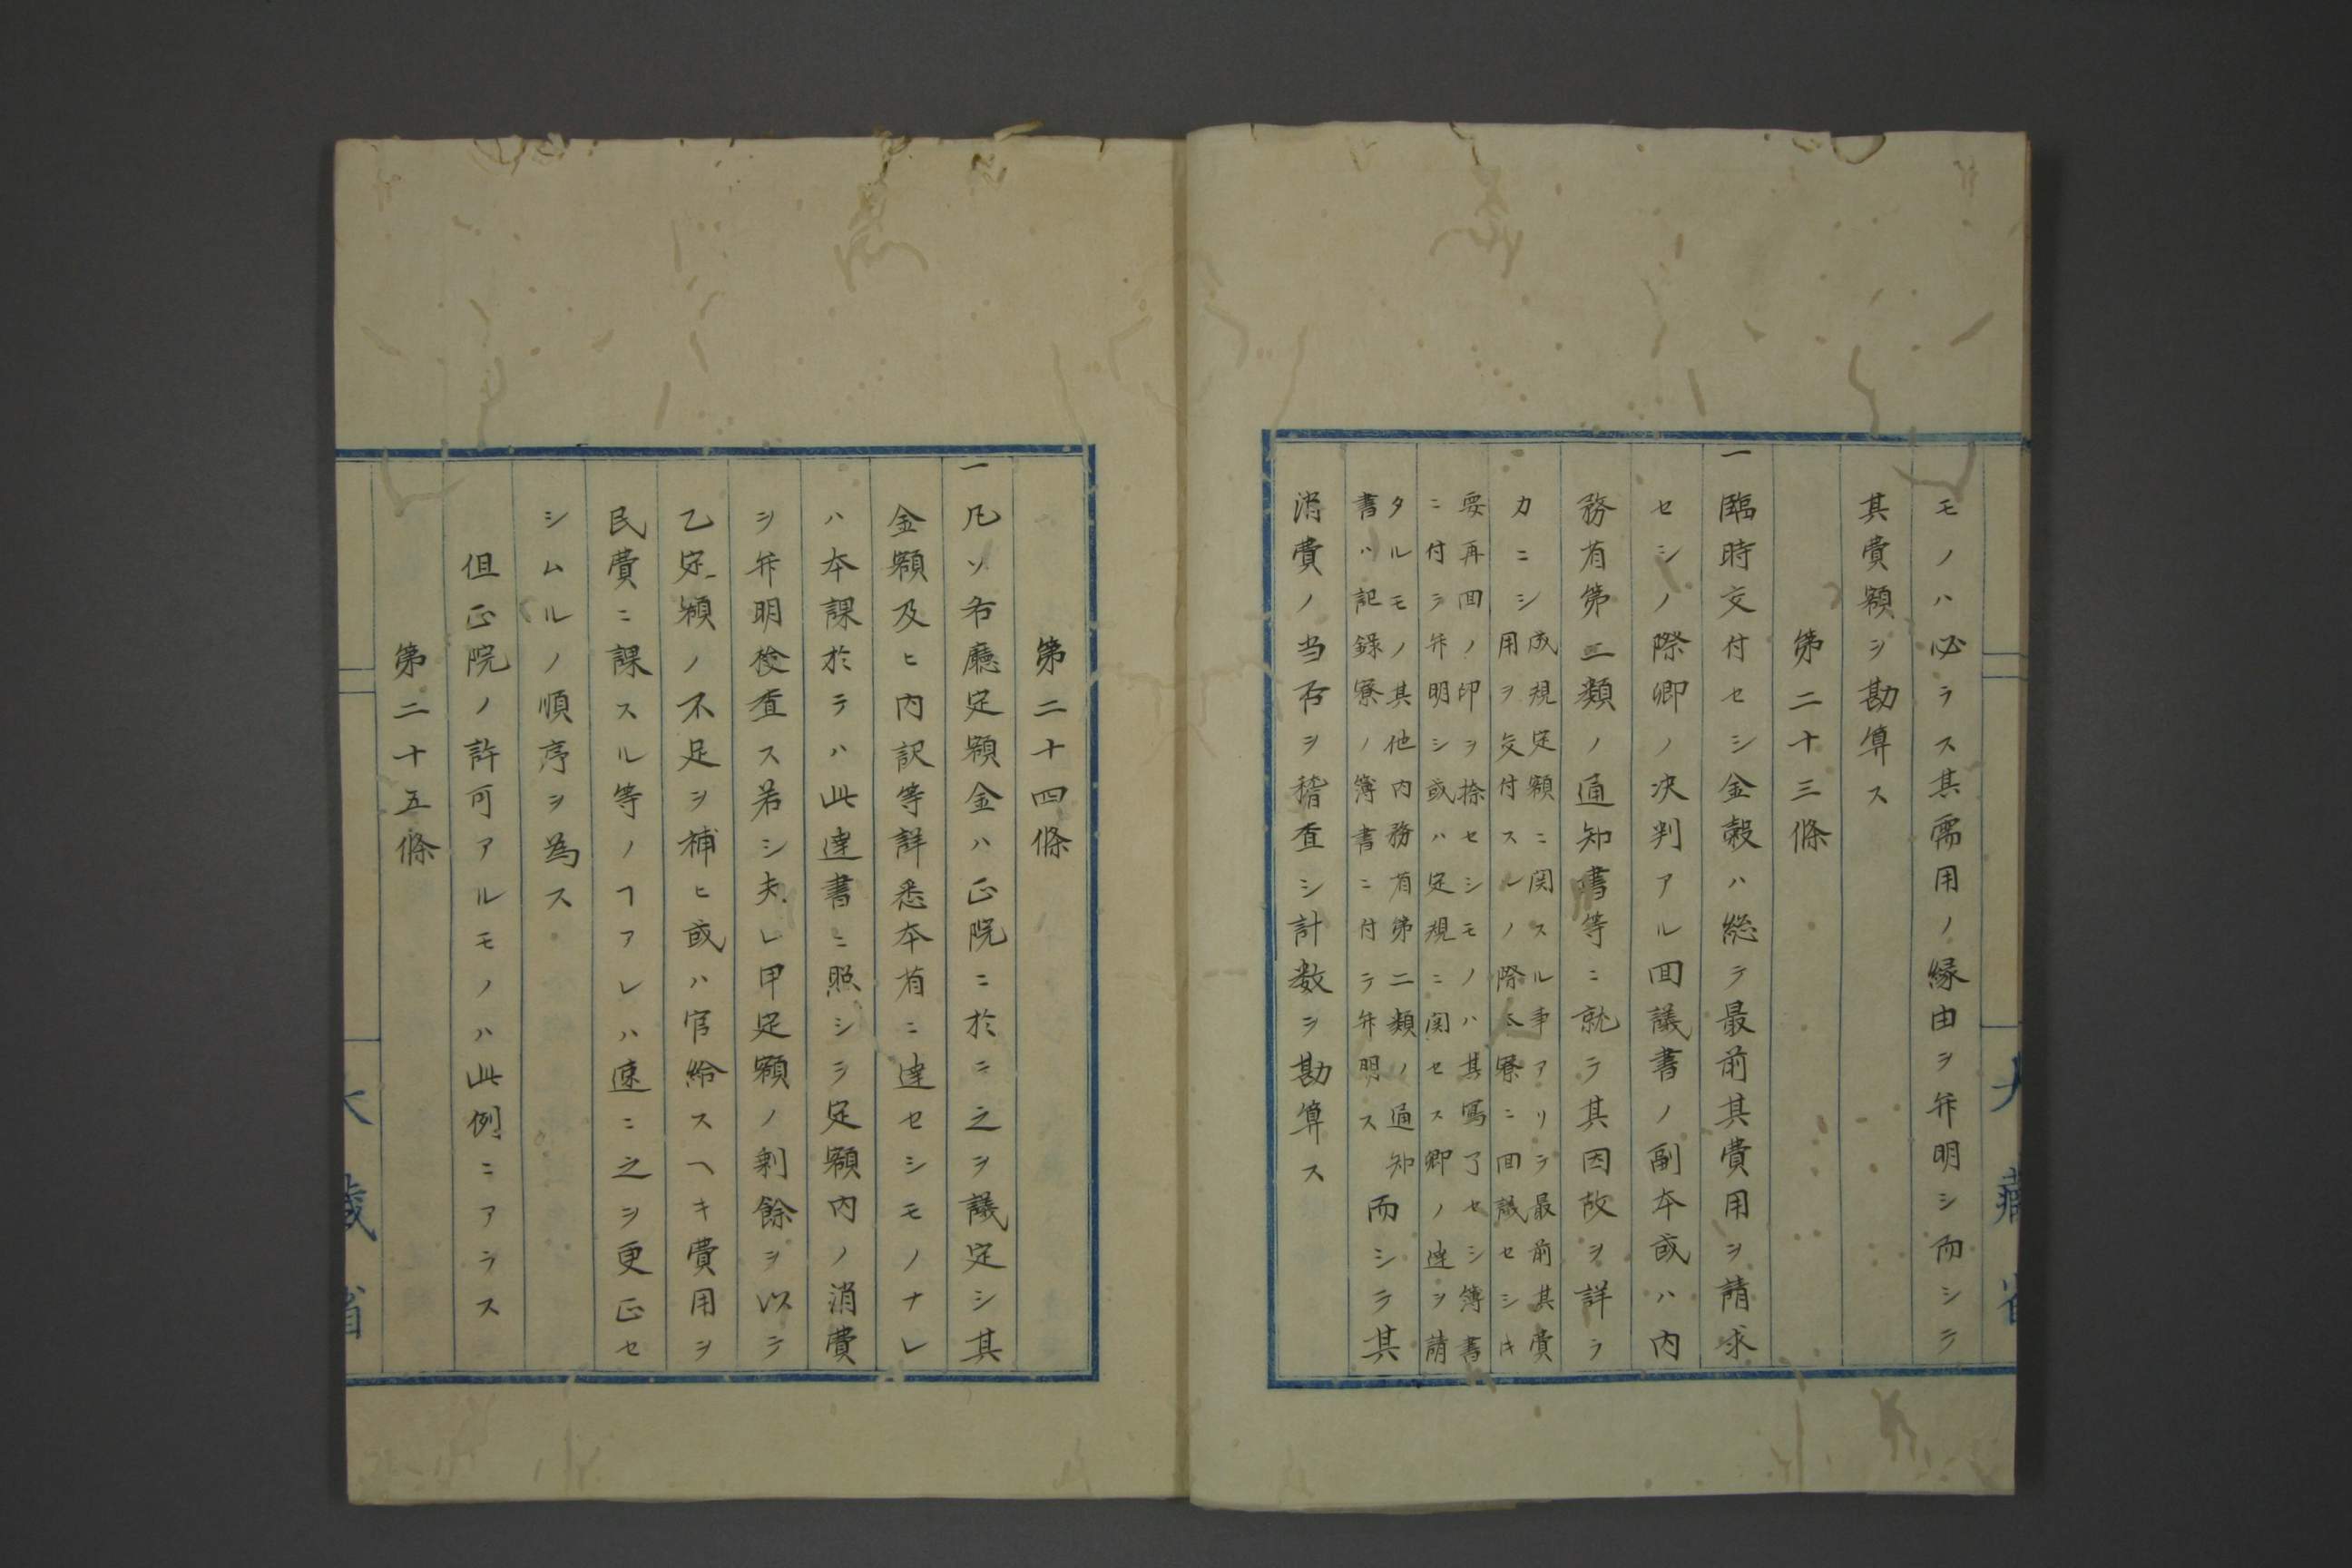 モノハ必ラス其需用ノ縁由ヲ弁明シ而シテ
其費額ヲ勘算ス
第二十三條
一臨時交付セシ金穀ハ総テ最前其費用ヲ請求
セシノ際卿ノ決判アル回議書ノ副本或ハ内
務省第二類ノ通知書等ニ就テ其因故ヲ詳ラ
カニシ
成規定額ニ関スル事アリテ最前其費
用ヲ交付スルノ際本寮ニ回議セシキ
要再回ノ印ヲ捺セシモノハ其写了セシ簿書
ニ付テ弁明シ或ハ定規ニ関セス卿ノ達ヲ請
タルモノ其他内務省第二類ノ通知
書ハ記録寮ノ簿書ニ付テ弁明ス
而シテ其
消費ノ当否ヲ稽査シ計数ヲ勘算ス
第二十四條
一凡ソ各廳定額金ハ正院ニ於ニ之ヲ議定シ其
金額及ヒ内訳等詳悉本省ニ達セシモノナレ
ハ本課於テハ此達書ニ照シテ定額内ノ消費
ヲ弁明検査ス若シ夫レ甲定額ノ剰餘ヲ以テ
乙定額ノ不足ヲ補ヒ或ハ官給スヘキ費用ヲ
民費ニ課スル等ノヿアレハ速ニ之ヲ更正セ
シムルノ順序ヲ為ス
但正院ノ許可アルモノハ此例ニアラス
第二十五條
大藏省